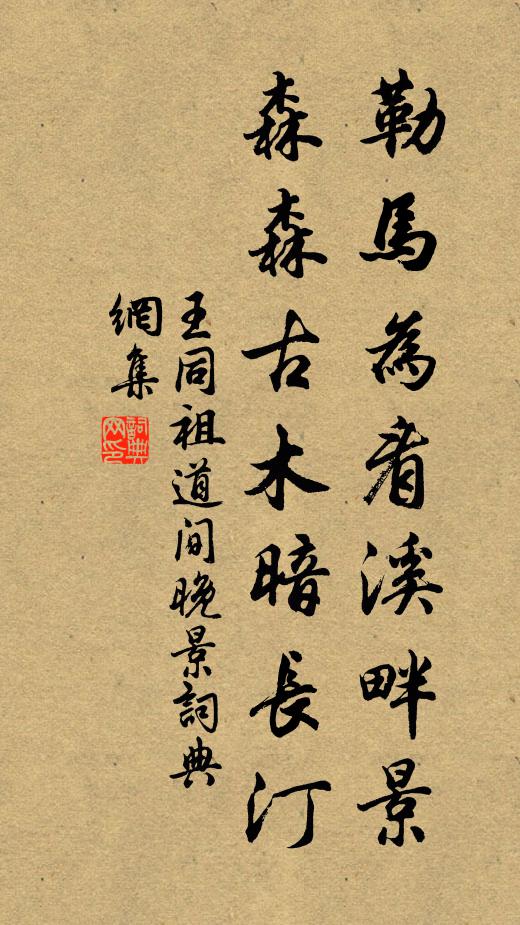 勒馬為看溪畔景
森森古木暗長汀
王同祖道間晚景詞典
網集
詞典网印